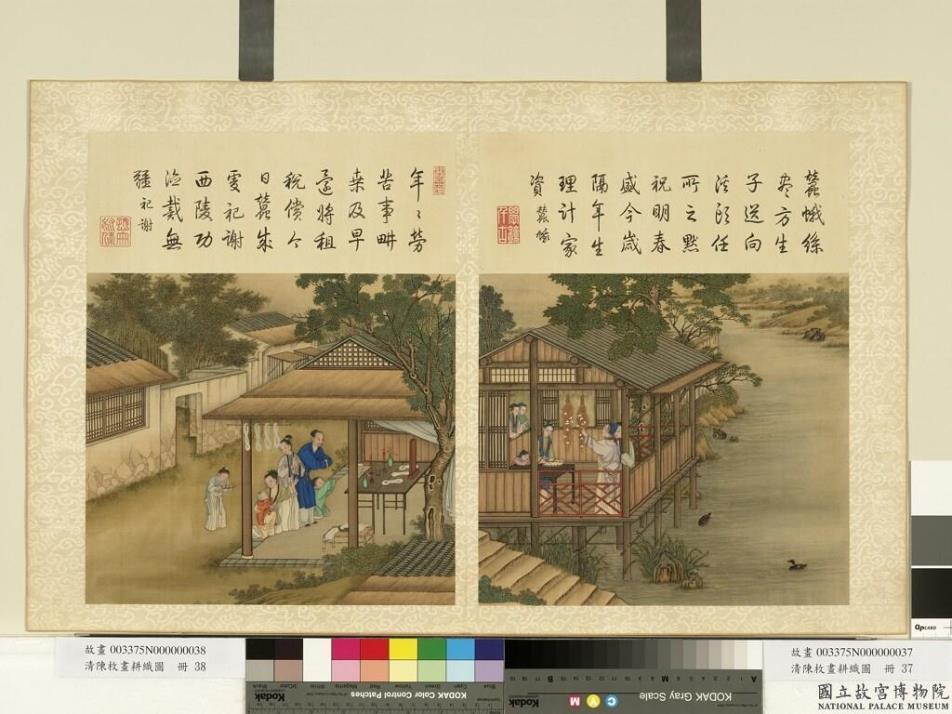 蠶蛾絲
盡方生
子送向
溪頭任
所之默
祝明春
盛今歲
隔年生
理計家
資 蠶蛾
年〻勞
苦事畊
桒及早
還將租
稅償今
日蠶成
虔祀謝
西陵功
德戴無
疆 祀謝
故畫 003375N000000038
清陳枚畫耕織圖 冊 38
故畫 003375N000000037
清陳枚畫耕織圖 冊 37
Kodak Color Control Patches
Kodak
KODAK Gray Scale
A
M
B
C Y M
QPCARD
國立故宮博物院
NATIONAL PALACE MUSEUM